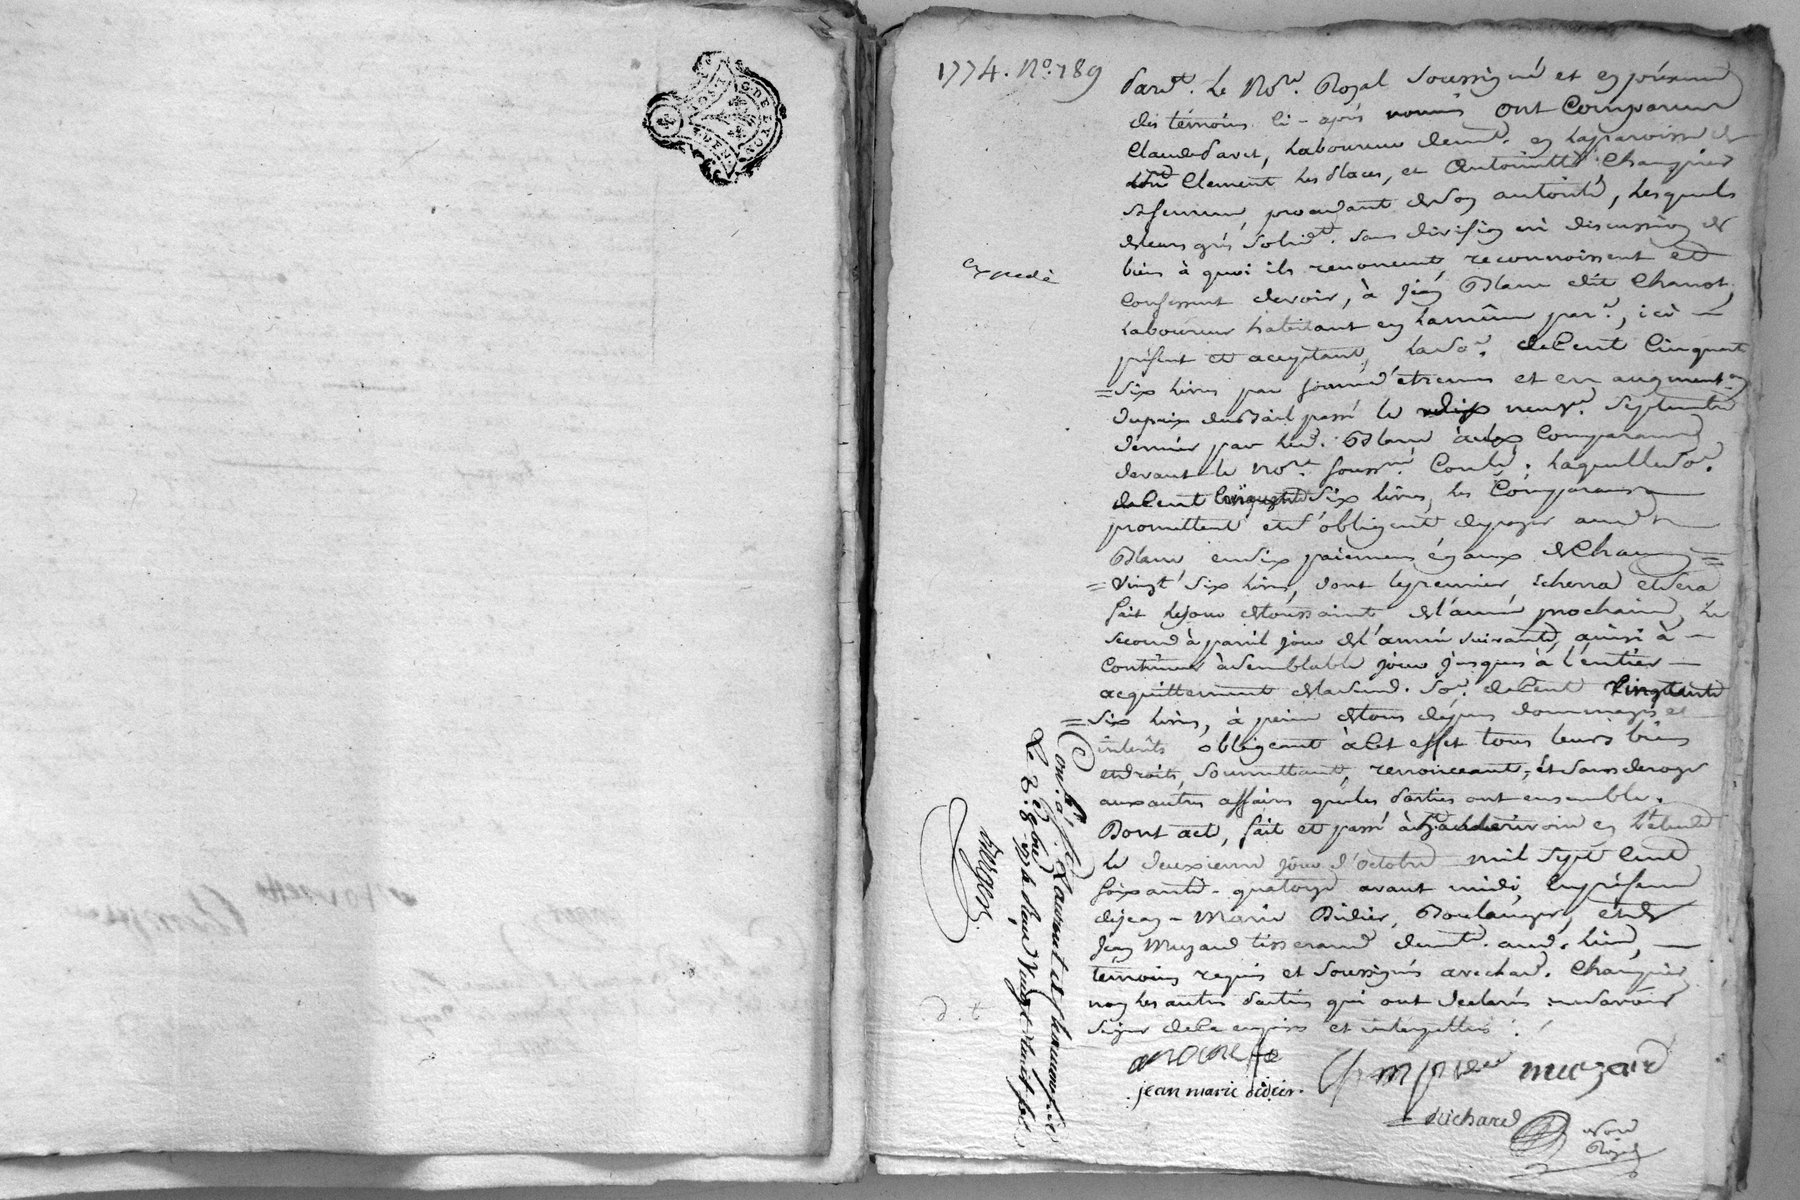 1774. No. 189
Pardt. Le Nore. Royal Soussigné et en présence
des témoins ci-après nommés ont Comparu
Claude Pavet, Laboureur demt. en la paroisse de
Clement Les Places, et Antoinette Chanpier
Sa femme, procédant de Son autorité, Lesquels
de leurs grés Solidt. Sans division ni discussion de
biens à quoi ils renoncent, reconnoissent et
Confessent devoir, à Jean Blanc dit Charrot,
Laboureur habitant en La même parse., ici
présent et acceptant, La Sor. de Cent Cinquante
Six Livres par forme d'étrennes et en augmenton
du prix du Bail passé le neufe. Septembre
dernier par Led. Blanc aux Comparants
devant le nore. Soussné. Conlé. Laquelle Sor.
de Cent Six Livres, Les Comparants
promettent et S'obligent de payer aud.
Blanc en Six paiemens égaux de Chacun
vingt Six Livres, dont le premier Echerra et Sera
fait le jour de toussaint de l'année prochaine, Le
Second à pareil jour de l'année Suivante, ainsi à
Continuer à Semblable jour jusques à l'entier
acquittement de lad. Sor. de Cent
Six Livres, à peine de tous dépens dommages et
intérêts obligeant à Cet effet tous leurs biens
et droits, Soumettant, renonceant, et Sans deroger
aux autres affaires que les Parties ont ensemble.
Dont act, fait et passé à en L'étude
le deuxieme jour d'octobre mil Sept Cent
Soixante-quatorze avant midi, En présence
de Jean-Marie Didier, Boulanger, et de
Jean Muzard tisserand demts. aud. Lieu,
témoins requis et Soussignés avec Lad. Chanpier
non Les autres Parties qui ont déclaré ne Savoir
Signer de Ce enquis et interpellés.
expédié
Conlé. à St. Laurent de Chamousset
Le 8bre 1774 Reçu Vingt-huit Sols
d. t.
anoinette Chanpier muzard
jean marie didier.
Richard
Nore
Royal